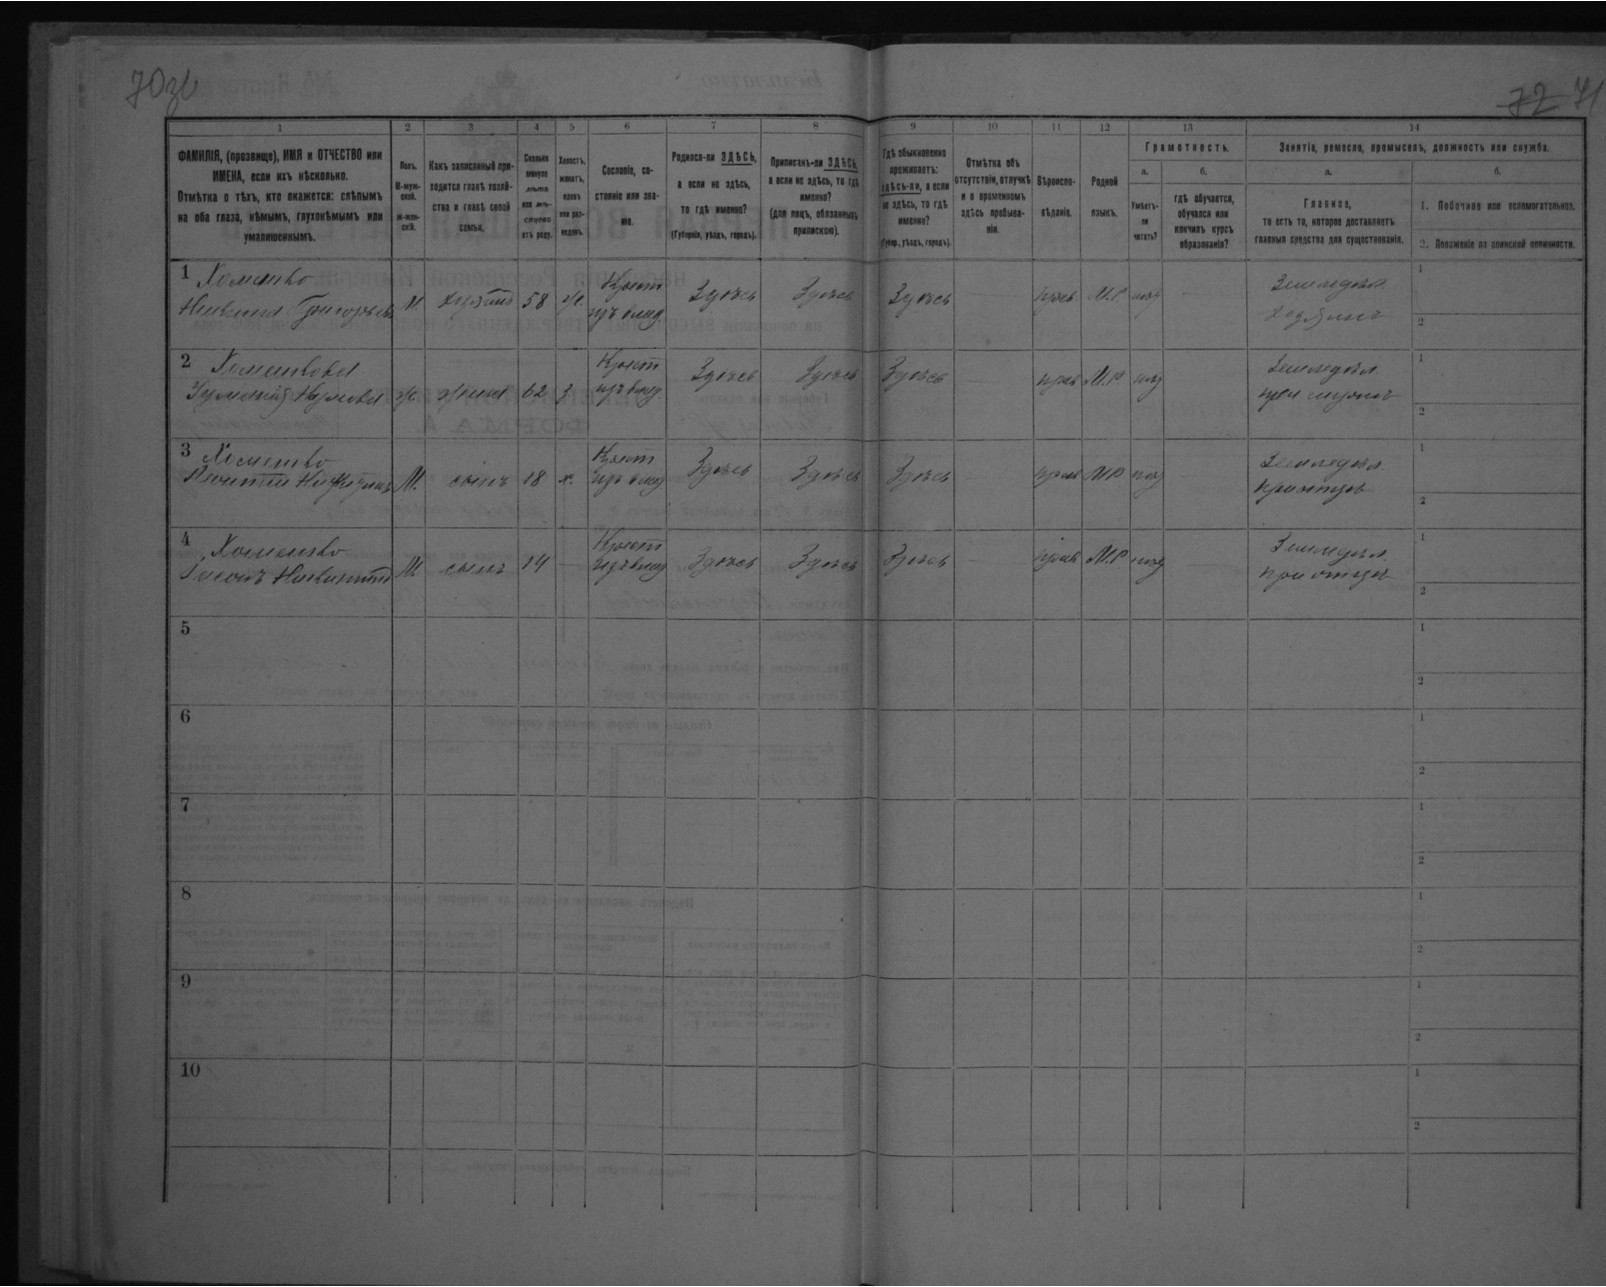 70об
72 71
1 2 3 4 5 6 7 8 9 10 11 12 13 14
ФАМИЛІЯ, (прозвище), ИМЯ и ОТЧЕСТВО или
ИМЕНА, если ихъ нѣсколько.
Отмѣтка о тѣхъ, кто окажется: слѣпымъ
на оба глаза, нѣмымъ, глухонѣмымъ или
умалишеннымъ.
Полъ.
М-муж-
ской.
ж-жен-
скій.
Какъ записанный при-
ходится главѣ хозяй-
ства и главѣ своей
семьи.
Сколько
минуло
лѣтъ
или мѣ-
сяцевъ
отъ роду.
Холостъ,
женатъ,
вдовъ
или раз-
веденъ.
Сословіе, со-
стояніе или зва-
ніе.
Родился-ли ЗДѢСЬ,
а если не здѣсь,
то гдѣ именно?
(Губернія, уѣздъ, городъ).
Приписанъ-ли ЗДѢСЬ,
а если не здѣсь, то гдѣ
именно?
(для лицъ, обязанныхъ
припискою).
Гдѣ обыкновенно
проживаетъ:
здѣсь-ли, а если
не здѣсь, то гдѣ
именно?
(Губер., уѣздъ, городъ).
Отмѣтка объ
отсутствіи, отлучкѣ
и о временномъ
здѣсь пребыва-
ніи.
Вѣроиспо-
вѣданіе.
Родной
языкъ.
Грамотность.
а.
Умѣетъ-
ли
читать?
б.
гдѣ обучается,
обучался или
кончилъ курсъ
образованія?
Занятіе, ремесло, промыселъ, должность или служба.
а.
Главное,
то есть то, которое доставляетъ
главныя средства для существованія.
б.
1. Побочное или вспомогательное.
2. Положеніе по воинской повинности.
1 Хоменко
Никита Григорьевъ М. 58 ж. Крест изъ влад. Здѣсь Здѣсь Здѣсь — прав М.Р. — Земледѣл
1
2
2 Хоменкова
Наумова ж. жена 62 з. Крест изъ влад. Здѣсь Здѣсь Здѣсь — прав М.Р. — Земледѣл при мужѣ
1
2
3 Хоменко
М. сынъ 18 х. Крест изъ влад Здѣсь Здѣсь Здѣсь — прав М.Р. — Земледѣл. при отцѣ
1
2
4 Хоменко
Никитинъ М. сынъ 14 — Крест изъ влад Здѣсь Здѣсь Здѣсь — прав М.Р. — Земледѣл. при отцѣ
1
2
5
1
2
6
1
2
7
1
2
8
1
2
9
1
2
10
1
2